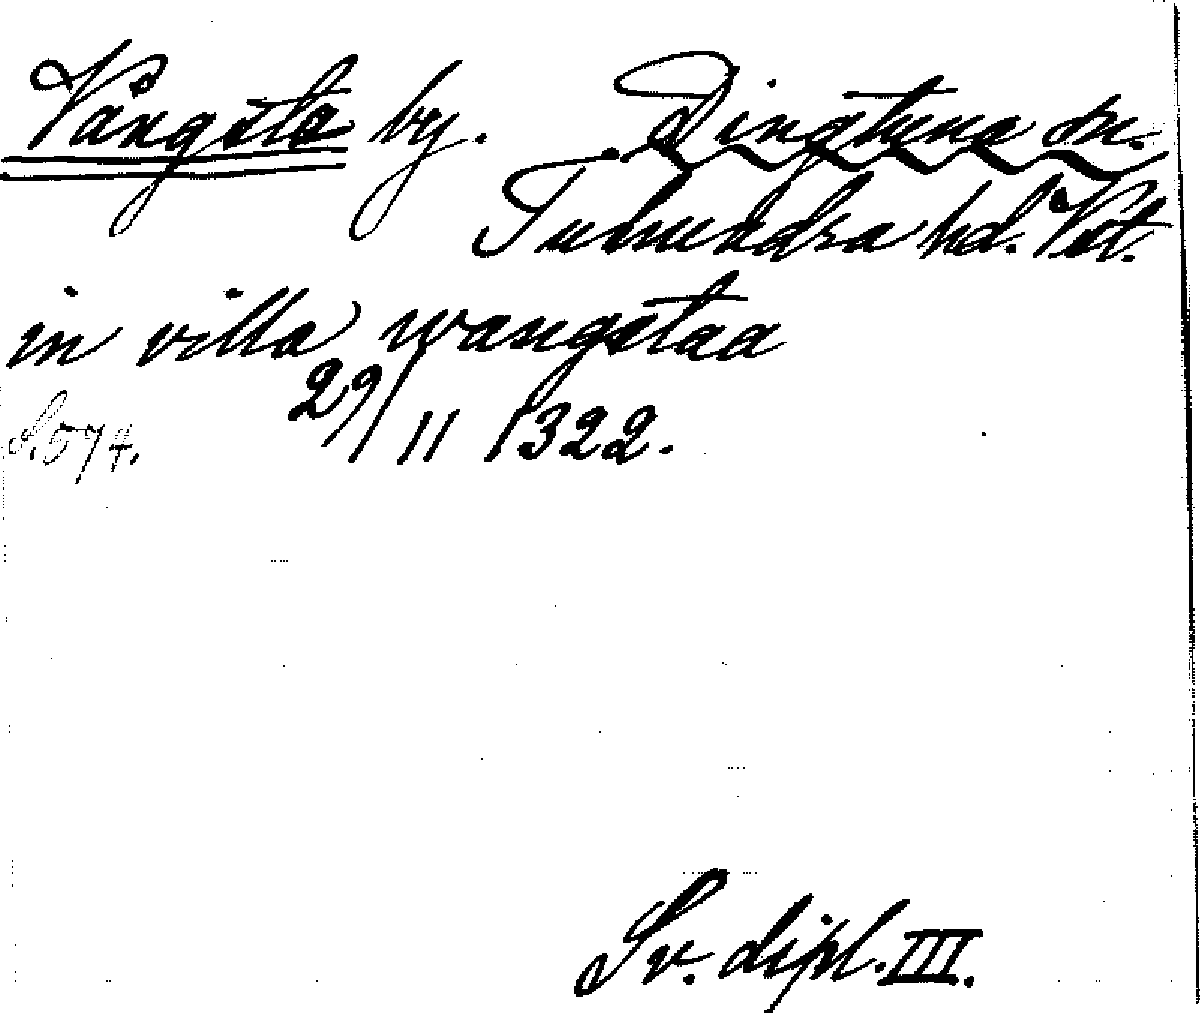 Vångsta by. Dingtuna sn.
Tuhundra hd. Vstm.
in villa wangstaa
29/11 1322.
S. 574.
Sv. dipl. III.